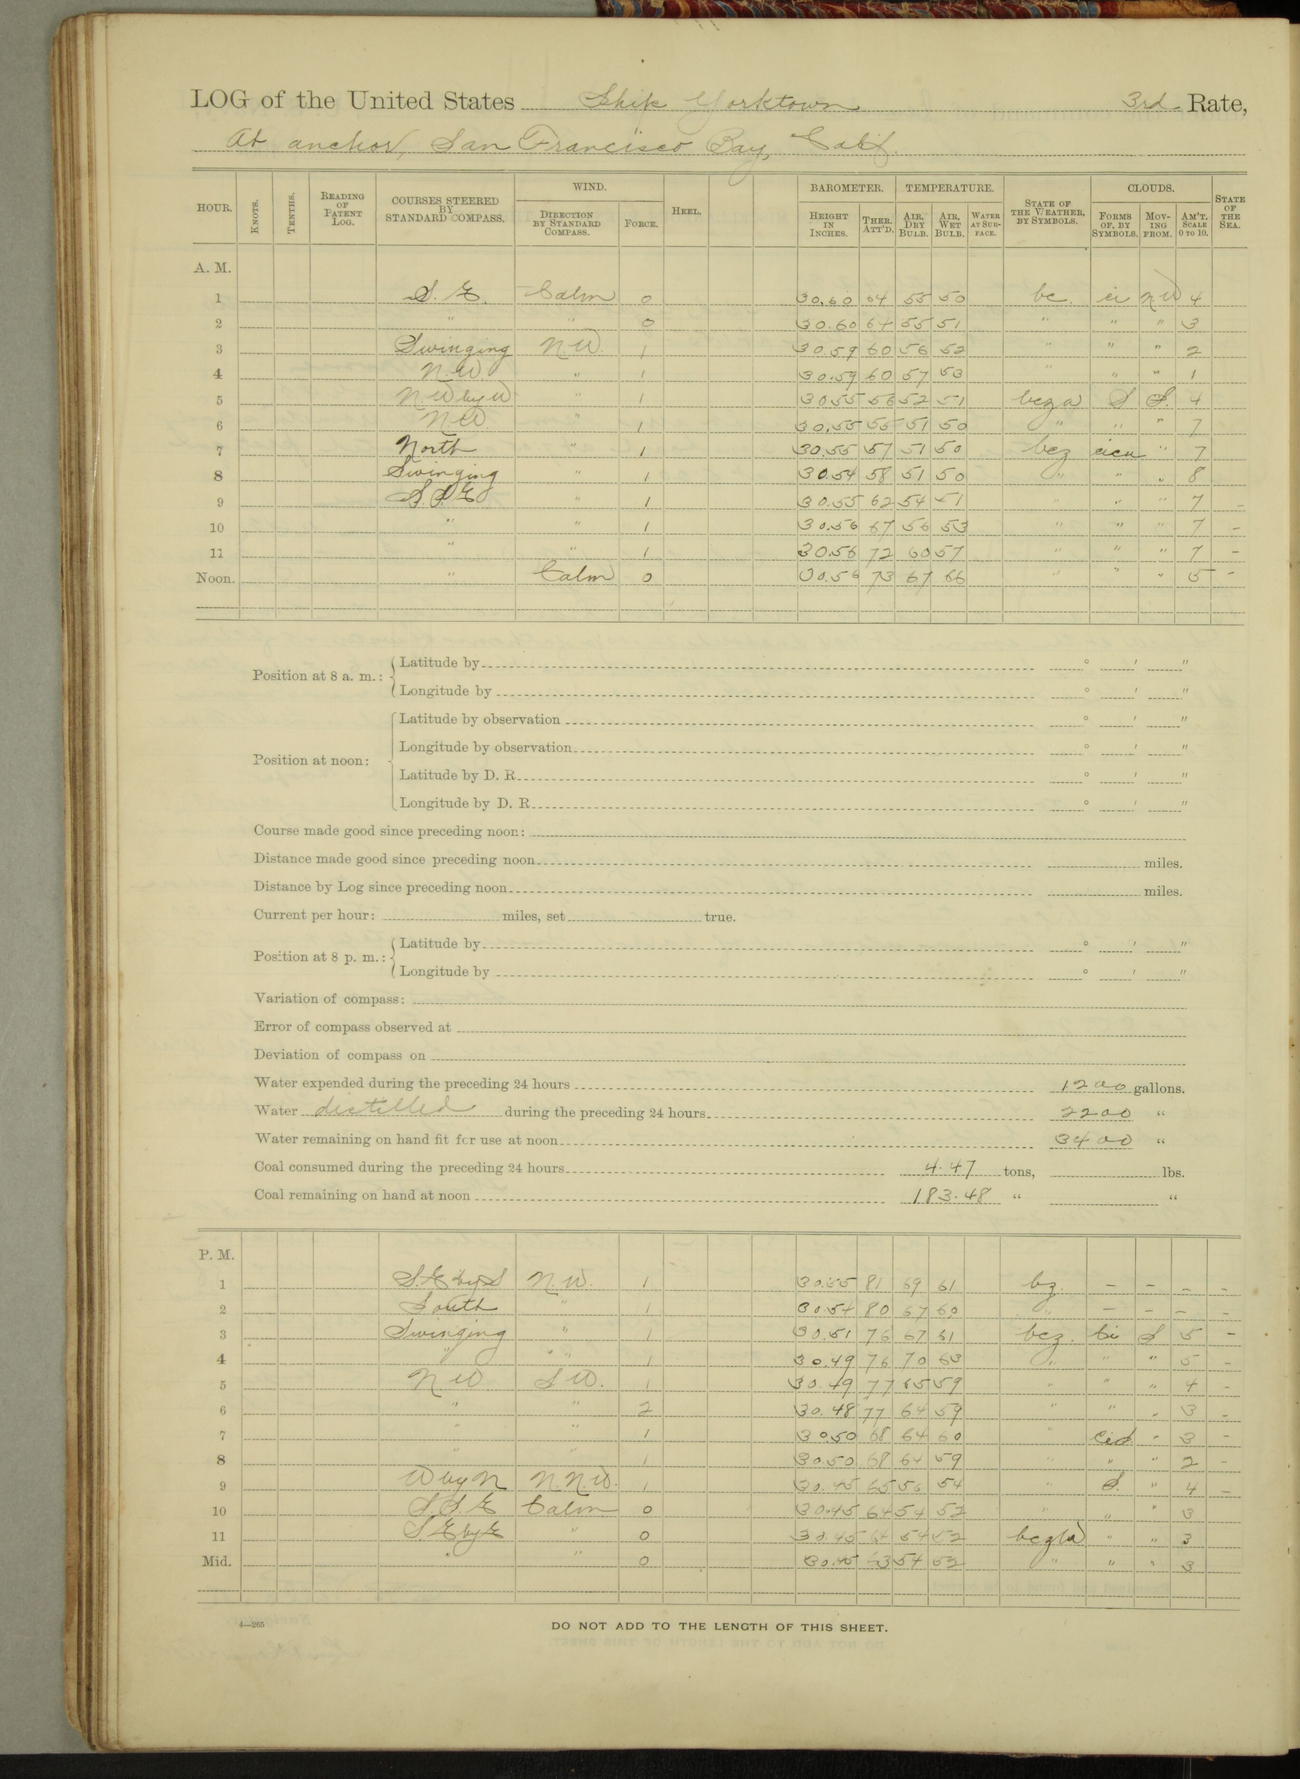 LOG of the United States Ship Yorktown 3rd Rate,
At anchor, San Francisco Bay, Calif.
HOUR. KNOTS. TENTHS. READING OF PATENT LOG. COURSES STEERED BY STANDARD COMPASS. WIND. DIRECTION BY STANDARD COMPASS. FORCE. HEEL. BAROMETER. HEIGHT IN INCHES. THER. ATT'D. TEMPERATURE. AIR, DRY BULB. AIR, WET BULB. WATER AT SURFACE. STATE OF THE WEATHER, BY SYMBOLS. CLOUDS. FORMS OF, BY SYMBOLS. MOVING FROM. AM'T. SCALE 0 TO 10. STATE OF THE SEA.
A. M.
1 S. E. Calm 0 30.60 64 55 50 bc. ci NW 4
2 " " 0 30.60 64 55 51 " " " 3
3 Swinging N.W. 1 30.59 60 56 52 " " " 2
4 N.W " 1 30.59 60 57 53 " " " 1
5 N.W by W " 1 30.55 56 52 51 bcza S S. 4
6 NW " 1 30.55 55 51 50 " " " 7
7 North " 1 30.55 57 51 50 bcz cicu " 7
8 Swinging " 1 30.54 58 51 50 " " " 8
9 S.S.E " 1 30.55 62 54 51 " " " 7 -
10 " " 1 30.56 67 56 53 " " " 7 -
11 " " 1 30.56 72 60 57 " " " 7 -
Noon. " Calm 0 30.56 73 67 66 " " " 5 -
Position at 8 a. m.: Latitude by ° ' "
Longitude by ° ' "
Position at noon: Latitude by observation ° ' "
Longitude by observation ° ' "
Latitude by D. R. ° ' "
Longitude by D. R. ° ' "
Course made good since preceding noon:
Distance made good since preceding noon miles.
Distance by Log since preceding noon miles.
Current per hour: miles, set true.
Position at 8 p. m.: Latitude by ° ' "
Longitude by ° ' "
Variation of compass:
Error of compass observed at
Deviation of compass on
Water expended during the preceding 24 hours 1200 gallons.
Water distilled during the preceding 24 hours 2200 "
Water remaining on hand fit for use at noon 3400 "
Coal consumed during the preceding 24 hours 4.47 tons, lbs.
Coal remaining on hand at noon 183.48 " "
P. M.
1 S.E by S N.W. 1 30.55 81 69 61 bz - - - -
2 South " 1 30.54 80 67 60 " - - - -
3 Swinging " 1 30.51 76 67 61 bcz. Ci S 5 -
4 " " 1 30.49 76 70 63 " " " 5 -
5 NW S W. 1 30.49 77 65 59 " " " 4 -
6 " " 2 30.48 77 64 59 " " " 3 -
7 " " 1 30.50 68 64 60 " Cis " 3 -
8 " " 1 30.50 68 64 59 " " " 2 -
9 W by N N.N.W. 1 30.45 65 56 54 " S. " 4 -
10 S S E Calm 0 30.45 64 54 52 " " " 3
11 S.E by E " 0 30.45 64 54 52 " " 3
Mid. " " 0 30.45 63 54 52 " " " 3
4—265
DO NOT ADD TO THE LENGTH OF THIS SHEET.